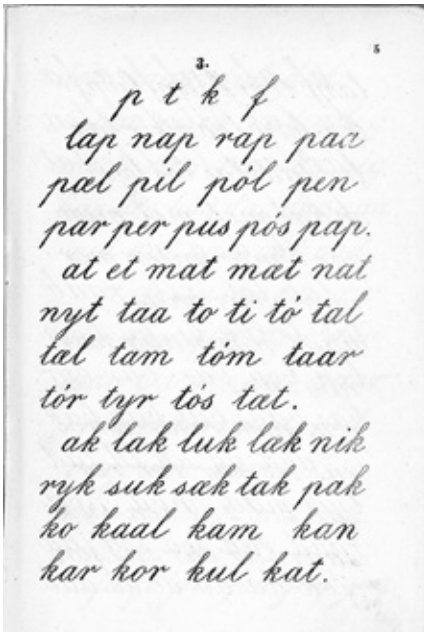 5
3.
p t k f
lap nap rap paa
pæl pil pól pen
par per pus pós pap.
at et mat mæt nat
nyt taa to ti tó tal
tæl tam tóm taar
tor tyr tós tæt.
ak lak luk læk nik
ryk suk sæk tak pak
ko kaal kam kan
kar kor kul kat.